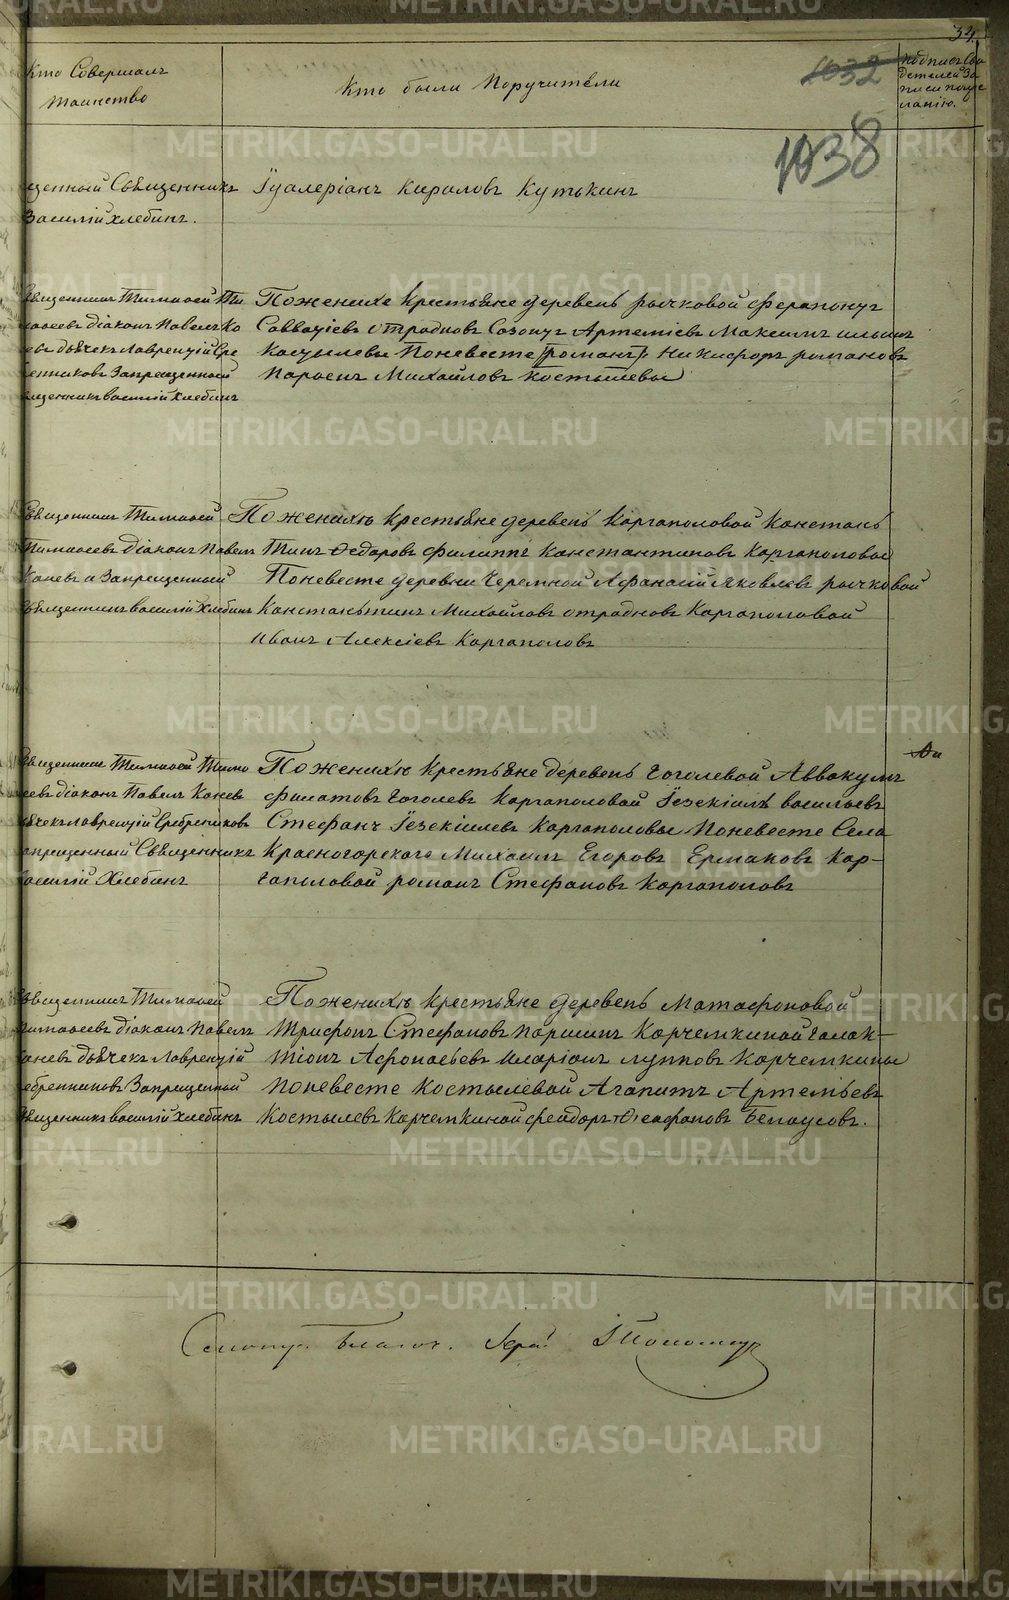 34.
Кто Совершалъ
таинство
Кто были Поручители
1032
Подписъ Сви
детелей За
писи пожѣ
ланію.
1038
щенный Священникъ
Василій Хлебинъ.
Іуалеріанъ Кириловъ Кутькинъ
Священникъ Тимоѳей Ти
моѳеевъ діаконъ Павелъ Ко
невъ дьячекъ Лаврентій Сре
бренниковъ Запрещенный
Священникъ василій Хлебинъ
Поженихе Крестьяне деревень рычковой ферапонтъ
Савватіевъ отрадновъ Созонтъ Артеміевъ Максимъ ильинъ
Костылевы Поневесте Никифоръ романовъ
Парфенъ Михайловъ Костылевы
Священникъ Тимоѳей
Тимоѳеевъ діаконъ Павелъ
Каневъ и Запрещенный
Священникъ василій Хлебинъ
Поженихѣ Крестьяне деревень Каргаполовой Констань
Тинъ Ѳедоровъ филиппъ Константиновъ Каргаполовы
Поневесте деревни Черемной Афанасій Яковлевъ рычковой
Констаньтинъ Михайловъ отрадновъ Каргаполовой
Иванъ Алексіевъ Каргаполовъ
Священникъ Тимоѳей Тимо
ѳеевъ діаконъ Павелъ Каневъ
дьячекъ лаврентій Сребрениковъ
Запрещенный Священникъ
василій Хлебинъ
Поженихѣ Крестьяне деревень гоголевой Аввакумъ
филатовъ гоголевъ Каргаполовой Іезекіилъ васильевъ
Стефанъ Іезекіилевъ Каргаполовы Поневесте Села
Красногорскаго Михаилъ Егоровъ Ермаковъ Кар-
гаполовой романъ Стефановъ Каргаполовъ
Священникъ Тимоѳей
Тимоѳеевъ діаконъ Павелъ
Каневъ дьячекъ Лаврентій
Сребренниковъ Запрещенный
Священникъ василій Хлебинъ
Поженихѣ Крестьяне деревень Матафоновой
Трифонъ Стефановъ Паршинъ Карчемкиной галак-
тіонъ Афонаевъ иларіонъ лупповъ Карчемкины
Поневесте Костылевой Агапитъ Артемьевъ
Костылевъ Карчемкиной фейдоръ Ѳеофановъ Белоусовъ.
METRIKI.GASO-URAL.RU